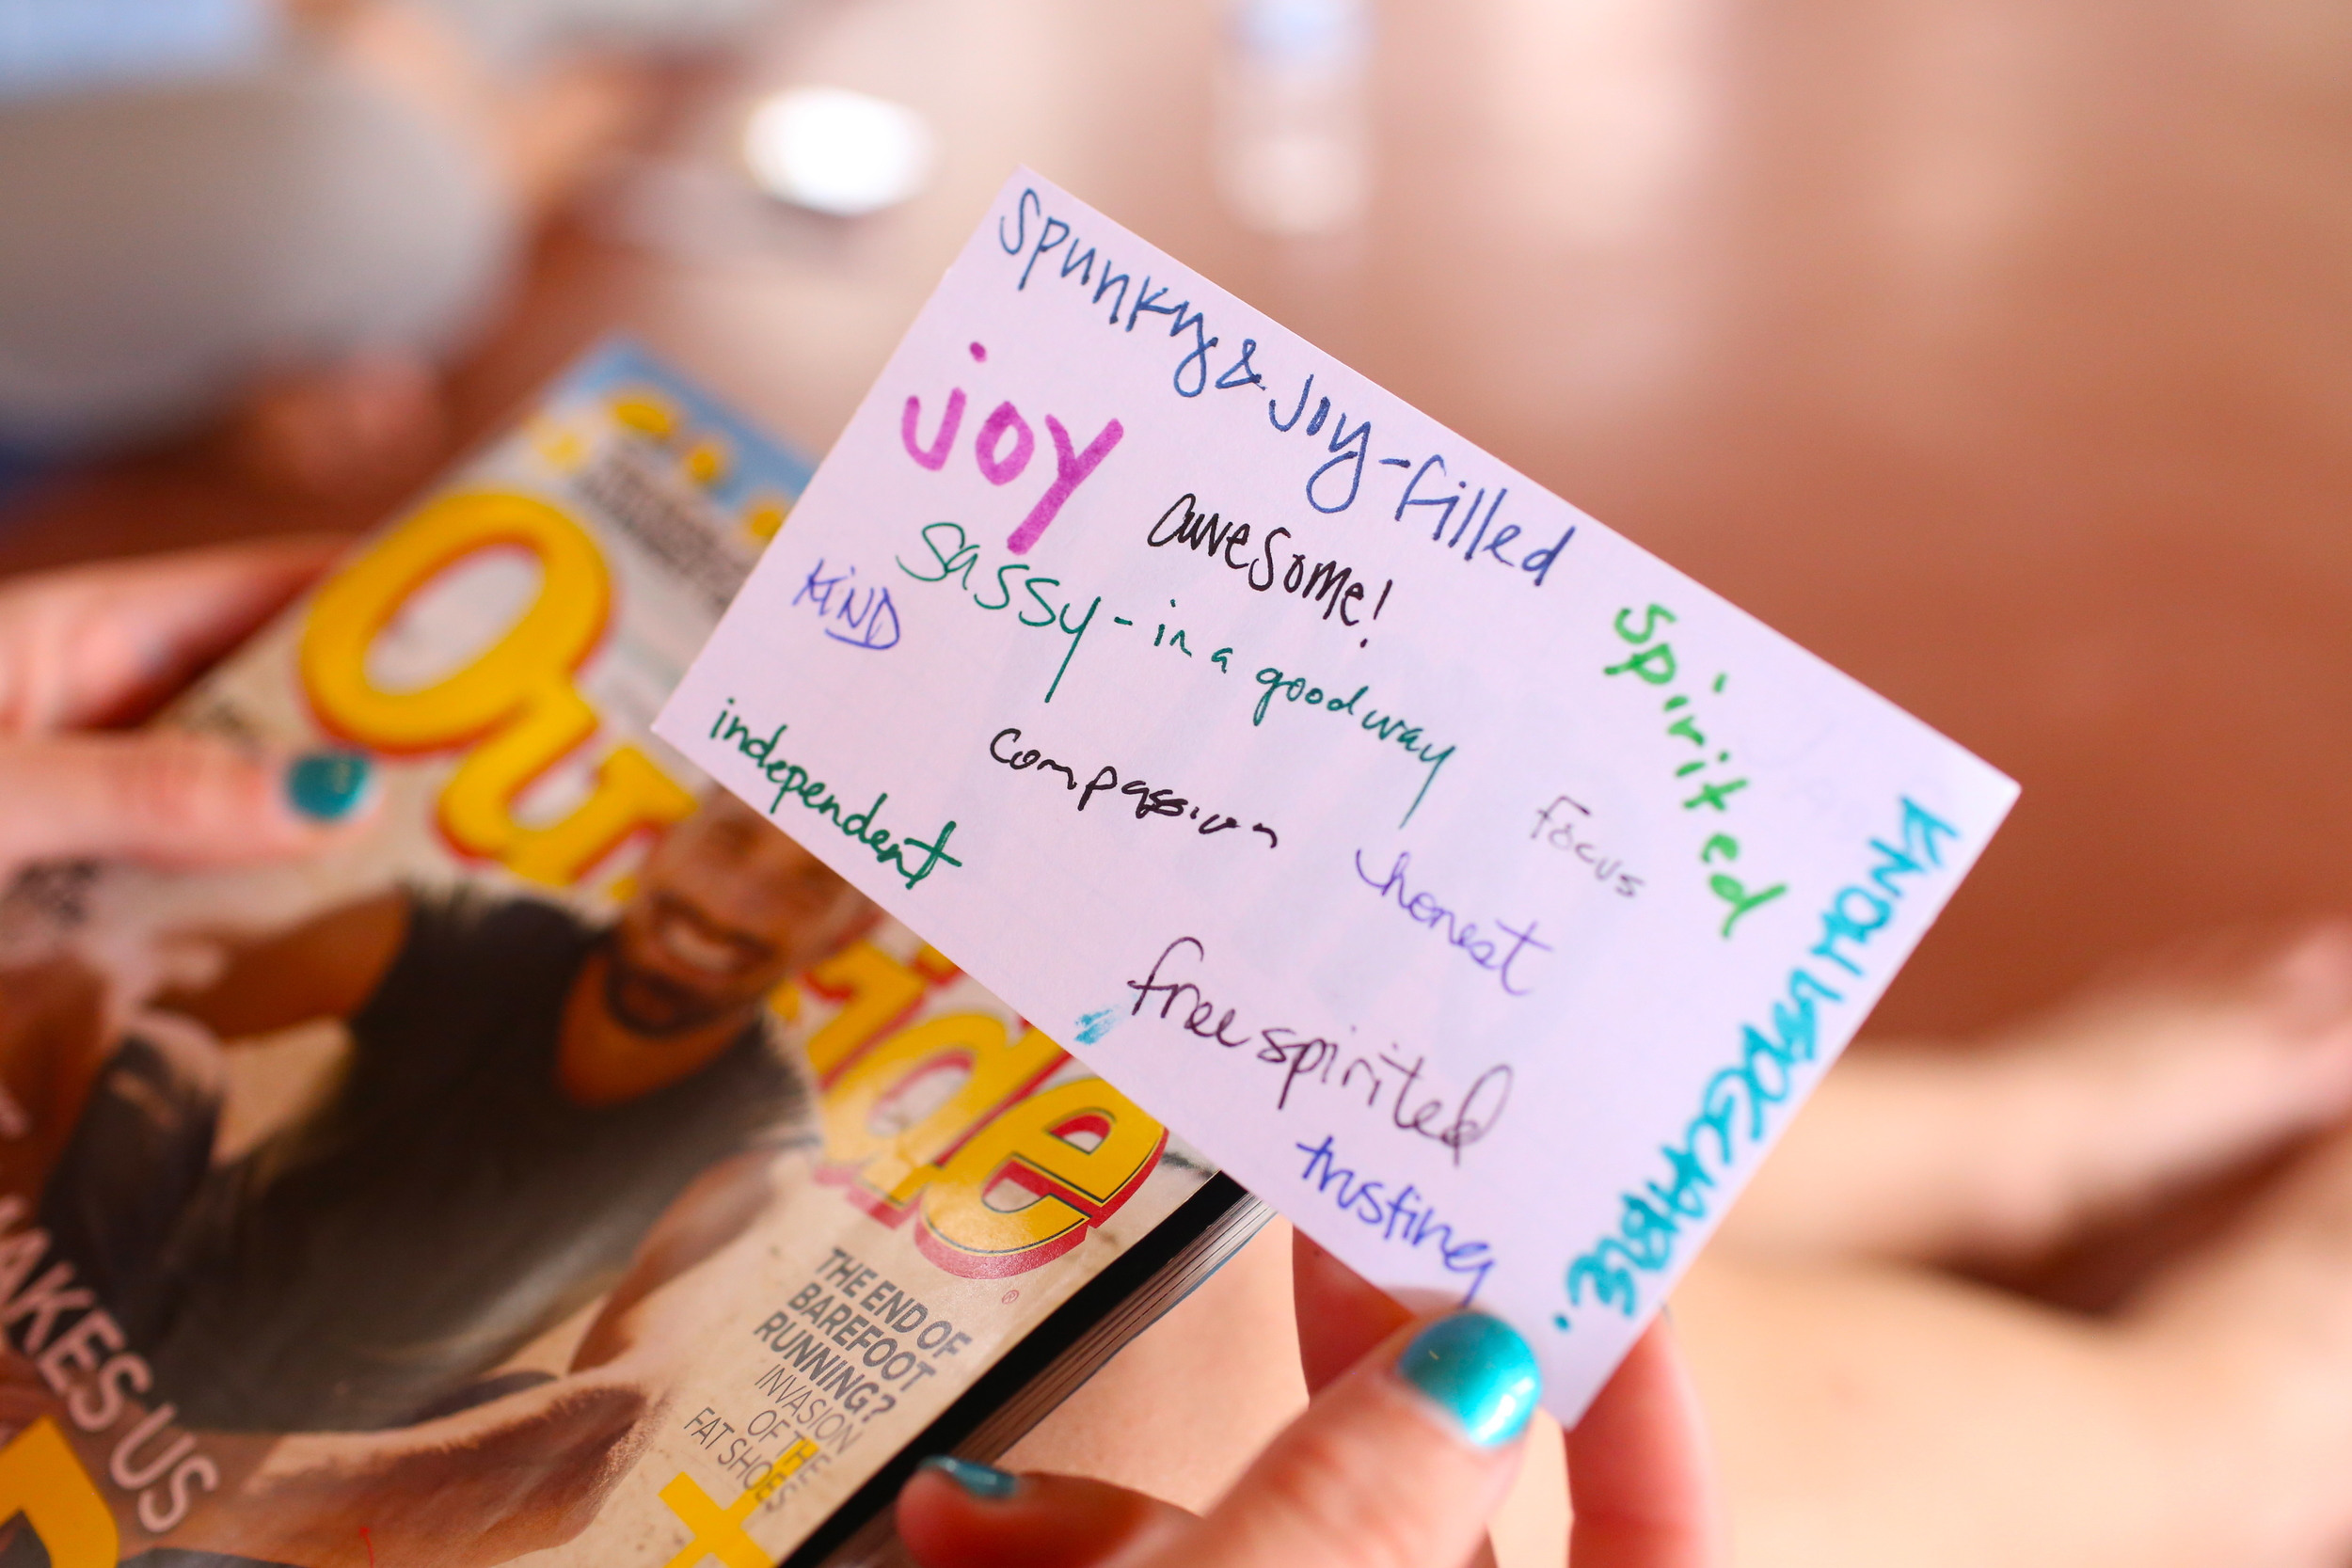 Spunky & Joy-filled
joy
awesome!
Sassy - in a good way
KiND
Spirited
independent
compassion
Focus
honest
free spirited
trusting
Outside
THE END OF
BAREFOOT
RUNNING?
INVASION
OF THE
FAT SHOES
AKES US